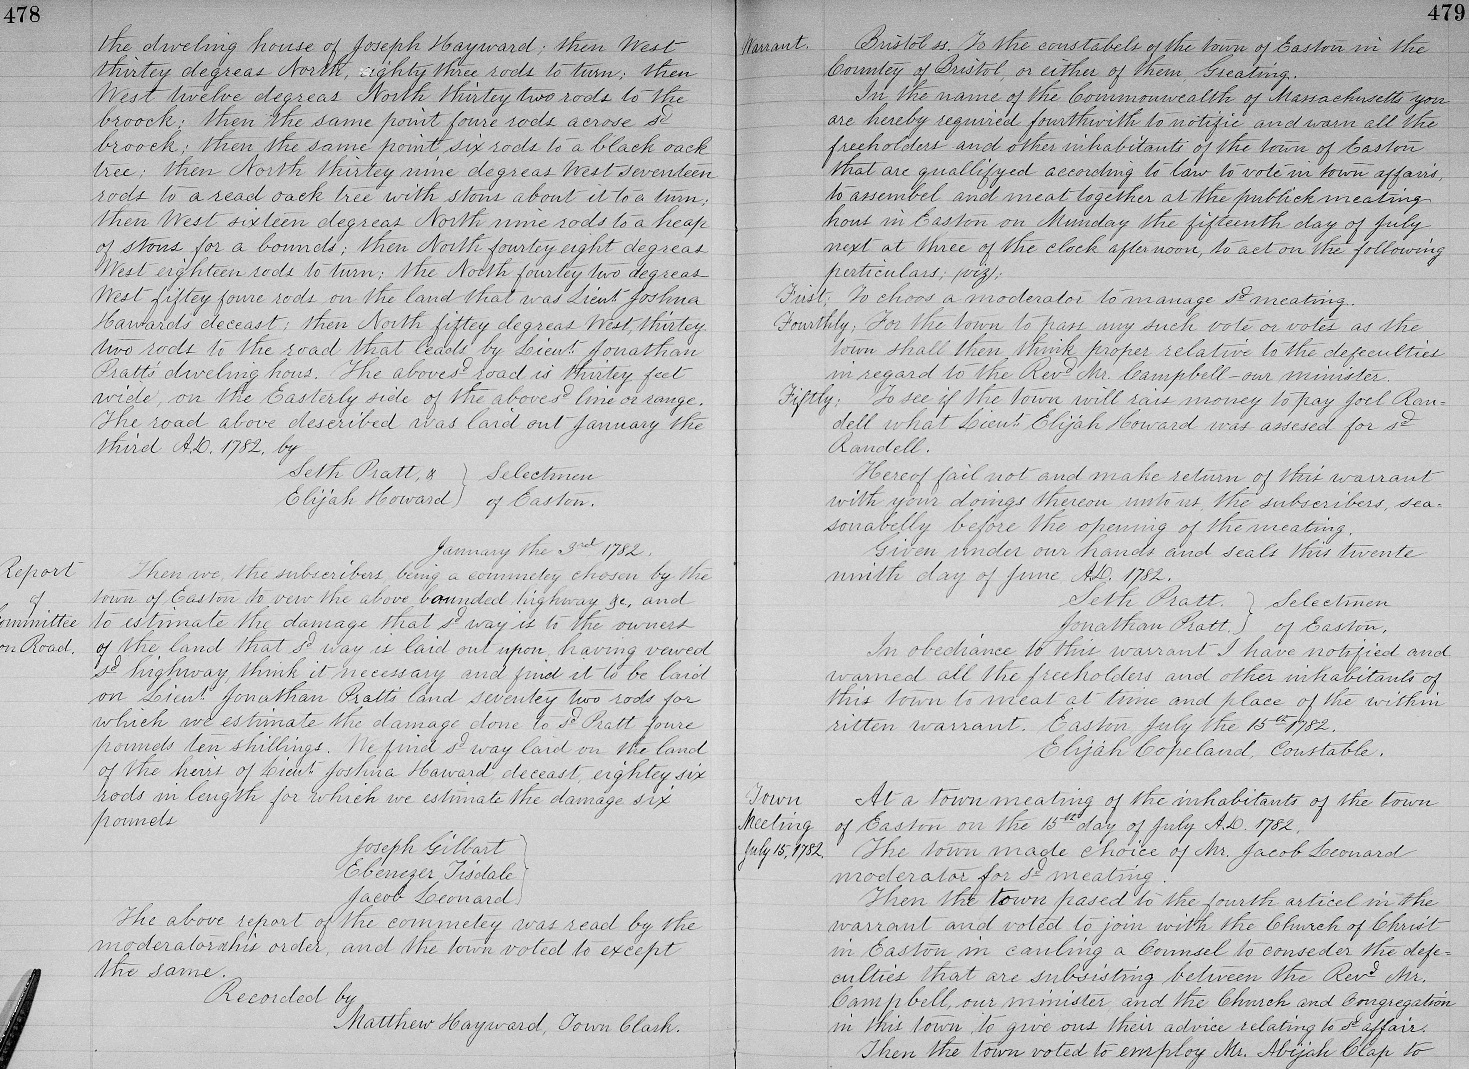 478
the dweling house of Joseph Hayward; then West
thirtey degreas North, eighty three rods to turn; then
West twelve degreas North thirtey two rods to the
broock; then the same point foure rods acrose sd
broock; then the same point, six rods to a black oack
tree; then North thirtey nine degreas West seventeen
rods to a read oack tree with stons about it to a turn;
then West sixteen degreas North nine rods to a heap
of stons for a bounds; then North fourtey eight degreas
West eighteen rods to turn; the North fourtey two degreas
West fiftey foure rods on the land that was Lieut Joshua
Hawards deceast; then North fiftey degreas West, thirtey
two rods to the road that leads by Lieut Jonathan
Pratts dweling hous. The abovesd road is thirtey feet
wide, on the Easterly side of the abovesd line or range.
The road above described was laid out January the
third A.D. 1782, by
Seth Pratt, & } Selectmen
Elijah Howard } of Easton.
January the 3rd 1782.
Report
of
Committee
on Road.
Then we, the subscribers, being a commetey chosen by the
town of Easton to vew the above bounded highway &c, and
to estimate the damage that sd way is to the owners
of the land that sd way is laid out upon, having vewed
sd highway think it necessary and find it to be laid
on Lieut Jonathan Pratts land seventey two rods for
which we estimate the damage done to sd Pratt foure
pounds ten shillings. We find sd way laid on the land
of the heirs of Lieut Joshua Haward deceast, eightey six
rods in length for which we estimate the damage six
pounds
Joseph Gilbart
Ebenezer Tisdale
Jacob Leonard
The above report of the commetey was read by the
moderator his order, and the town voted to except
the same.
Recorded by
Matthew Hayward, Town Clark.
479
Warrant.
Bristol ss. To the constabels of the town of Easton in the
Countey of Bristol, or either of them, Greating.
In the name of the Commonwealth of Massachusetts you
are hereby required fourthwith to notifie and warn all the
freeholders and other inhabitants of the town of Easton
that are quallifyed according to law to vote in town affairs,
to assembel and meat together at the publick meating
hous in Easton on Munday the fifteenth day of July
next at three of the clock afternoon, to act on the following
perticulars; (viz);
First; To choos a moderator to manage sd meating.
Fourthly; For the town to pass any such vote or votes as the
town shall then think proper relative to the defeculties
in regard to the Revd Mr. Campbell - our minister.
Fiftly; To see if the town will rais money to pay Joel Ran=
dell what Lieut Elijah Howard was assesed for sd
Randell.
Hereof fail not and make return of this warrant
with your doings thereon unto us, the subscribers, sea=
sonabelly before the opening of the meating.
Given under our hands and seals this twente
ninth day of June A.D. 1782.
Seth Pratt. } Selectmen
Jonathan Pratt. } of Easton.
In obediance to this warrant I have notified and
warned all the freeholders and other inhabitants of
this town to meat at time and place of the within
ritten warrant. Easton July the 15th 1782.
Elijah Copeland, Constable.
Town
Meeting
July 15, 1782.
At a town meating of the inhabitants of the town
of Easton on the 15th day of July A.D. 1782,
The town made choice of Mr. Jacob Leonard
moderator for sd meating.
Then the town pased to the fourth articel in the
warrant and voted to join with the Church of Christ
in Easton in cauling a Counsel to conseder the defe=
culties that are subsisting between the Revd Mr.
Campbell, our minister and the Church and Congregation
in this town to give ous their advice relating to sd affair.
Then the town voted to employ Mr. Abijah Clap to